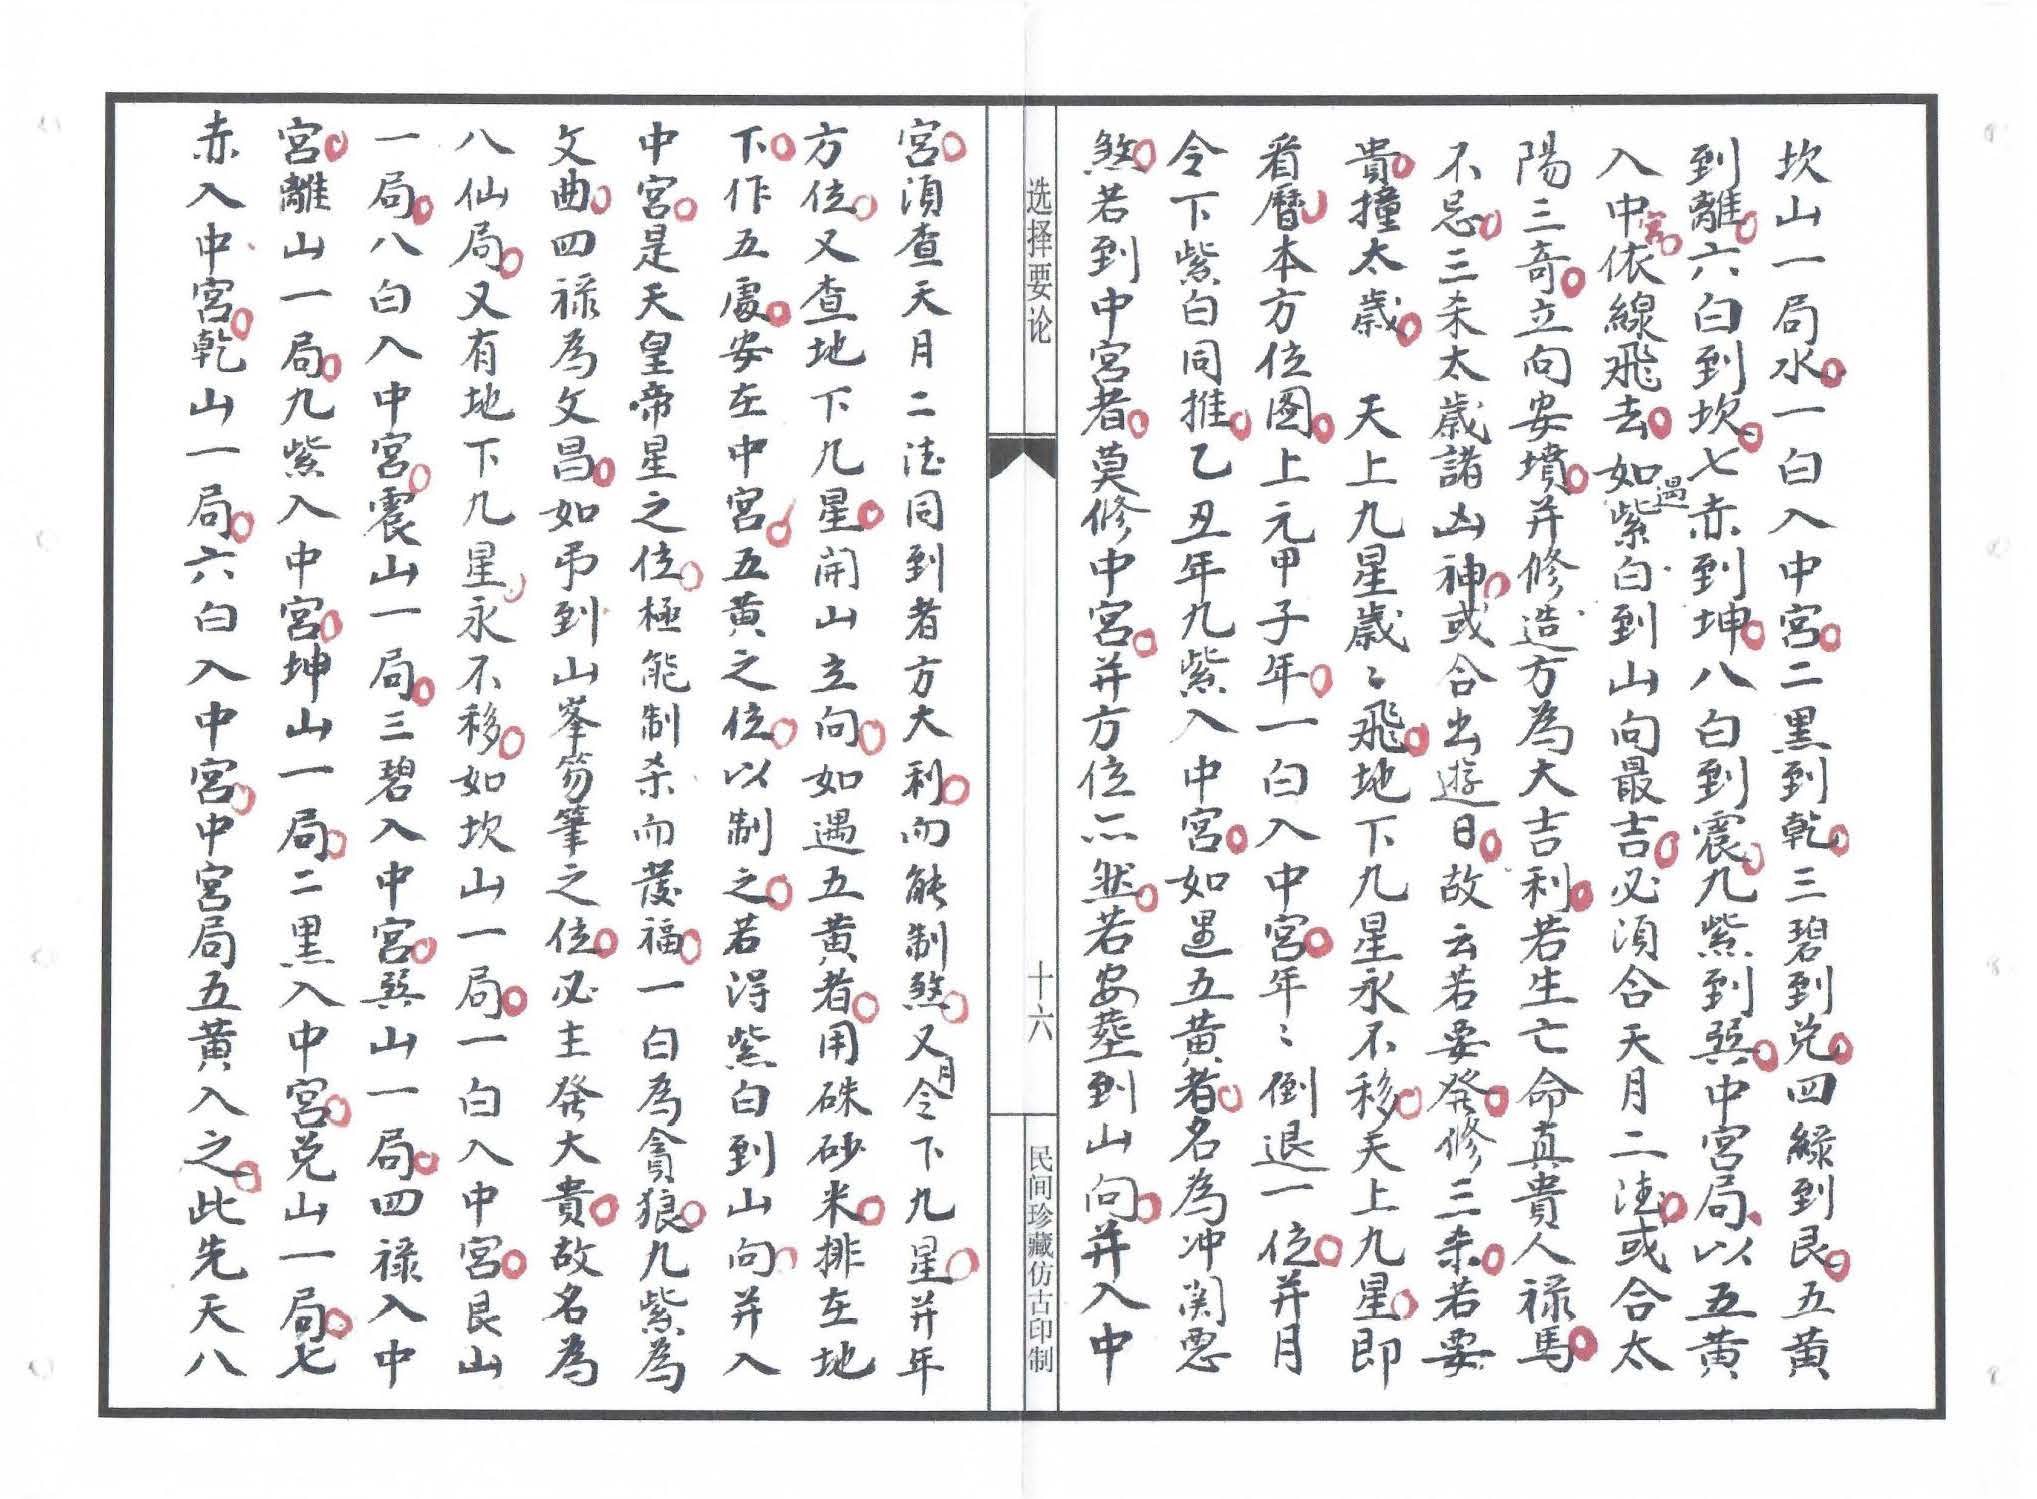 坎山一局水一白入中宮二黑到乾三碧到兑四綠到艮五黃
到離六白到坎七赤到坤八白到震九紫到巽中宮局以五黃
入中宮依線飛去如遇紫白到山向最吉必須合天月二德或合太
陽三奇立向安墳并修造方為大吉利若生亡命真貴人祿馬
不忌三杀太歲諸凶神或合出遊日故云若要發修三杀若要
貴撞太歲 天上九星歲〻飛地下九星永不移天上九星即
看曆本方位图上元甲子年一白入中宮年〻倒退一位并月
令下紫白同推乙丑年九紫入中宮如遇五黃者名為冲関惡
煞若到中宮者莫修中宮并方位亦然若安葬到山向并入中
选择要论
十六
民间珍藏仿古印制
宮須查天月二德同到者方大利而能制煞又月令下九星并年
方位又查地下九星開山立向如遇五黃者用硃砂米排在地
下作五處安在中宮五黃之位以制之若得紫白到山向并入
中宮是天皇帝星之位極能制杀而發福一白為貪狼九紫為
文曲四祿為文昌如弔到山峯笏筆之位必主發大貴故名為
八仙局又有地下九星永不移如坎山一局一白入中宮艮山
一局八白入中宮震山一局三碧入中宮巽山一局四祿入中
宮離山一局九紫入中宮坤山一局二黑入中宮兑山一局七
赤入中宮乾山一局六白入中宮中宮局五黃入之此先天八